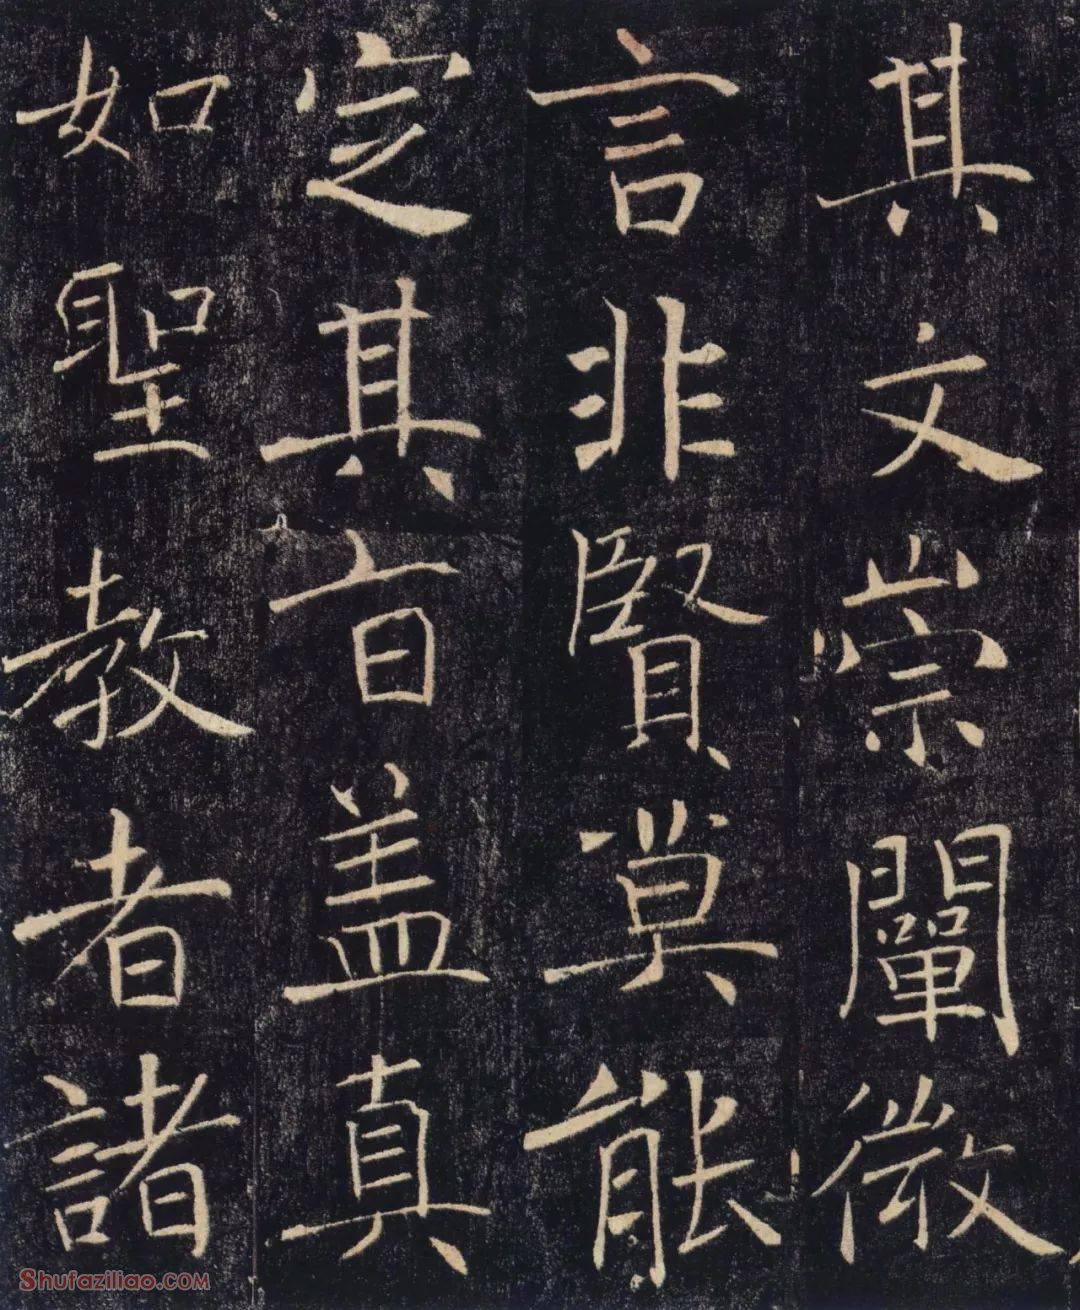 其文崇闡微
言非賢莫能
定其旨盖真
如聖教者諸
Shufaziliao.COM